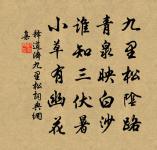 九里松陰路
青泉映白沙
誰知三伏暑
小草有幽花
九里松詞典網
集